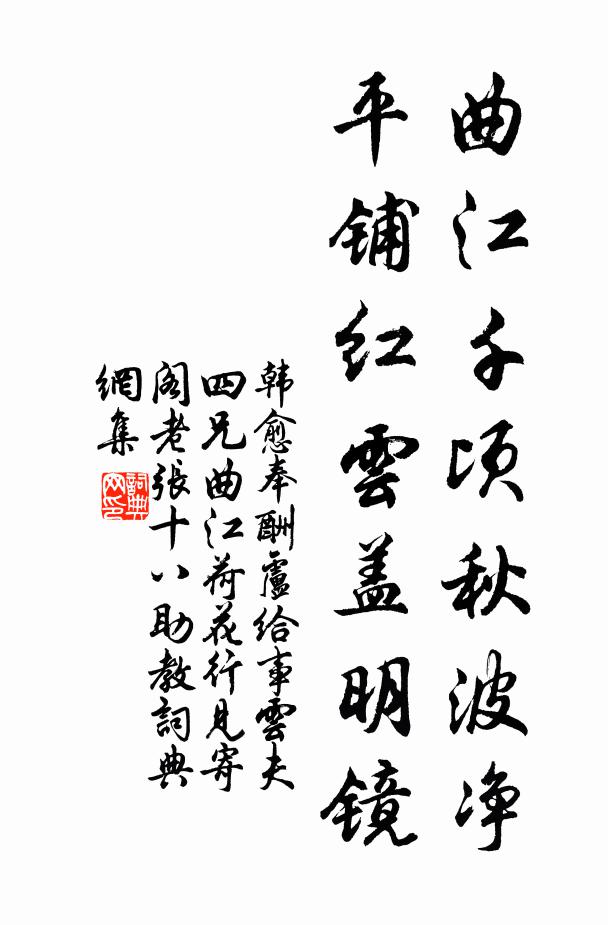 曲江千顷秋波净
平铺红雲盖明镜
韩愈奉酬盧给事雲夫
四兄曲江荷花行見寄
阁老張十八助教詞典
網集
詞典
网印